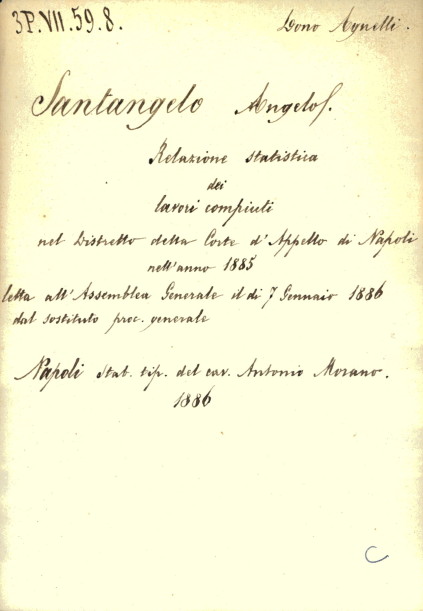 3P.VII.59.8.
Dono Agnelli.
Santangelo Angelo.
Relazione statistica
dei
lavori compiuti
nel Distretto della Corte d'Appello di Napoli
nell'anno 1885
letta all'Assemblea Generale il di 7 Gennaio 1886
dal sostituto proc. generale
Napoli Stab. tip. del cav. Antonio Morano.
1886
C